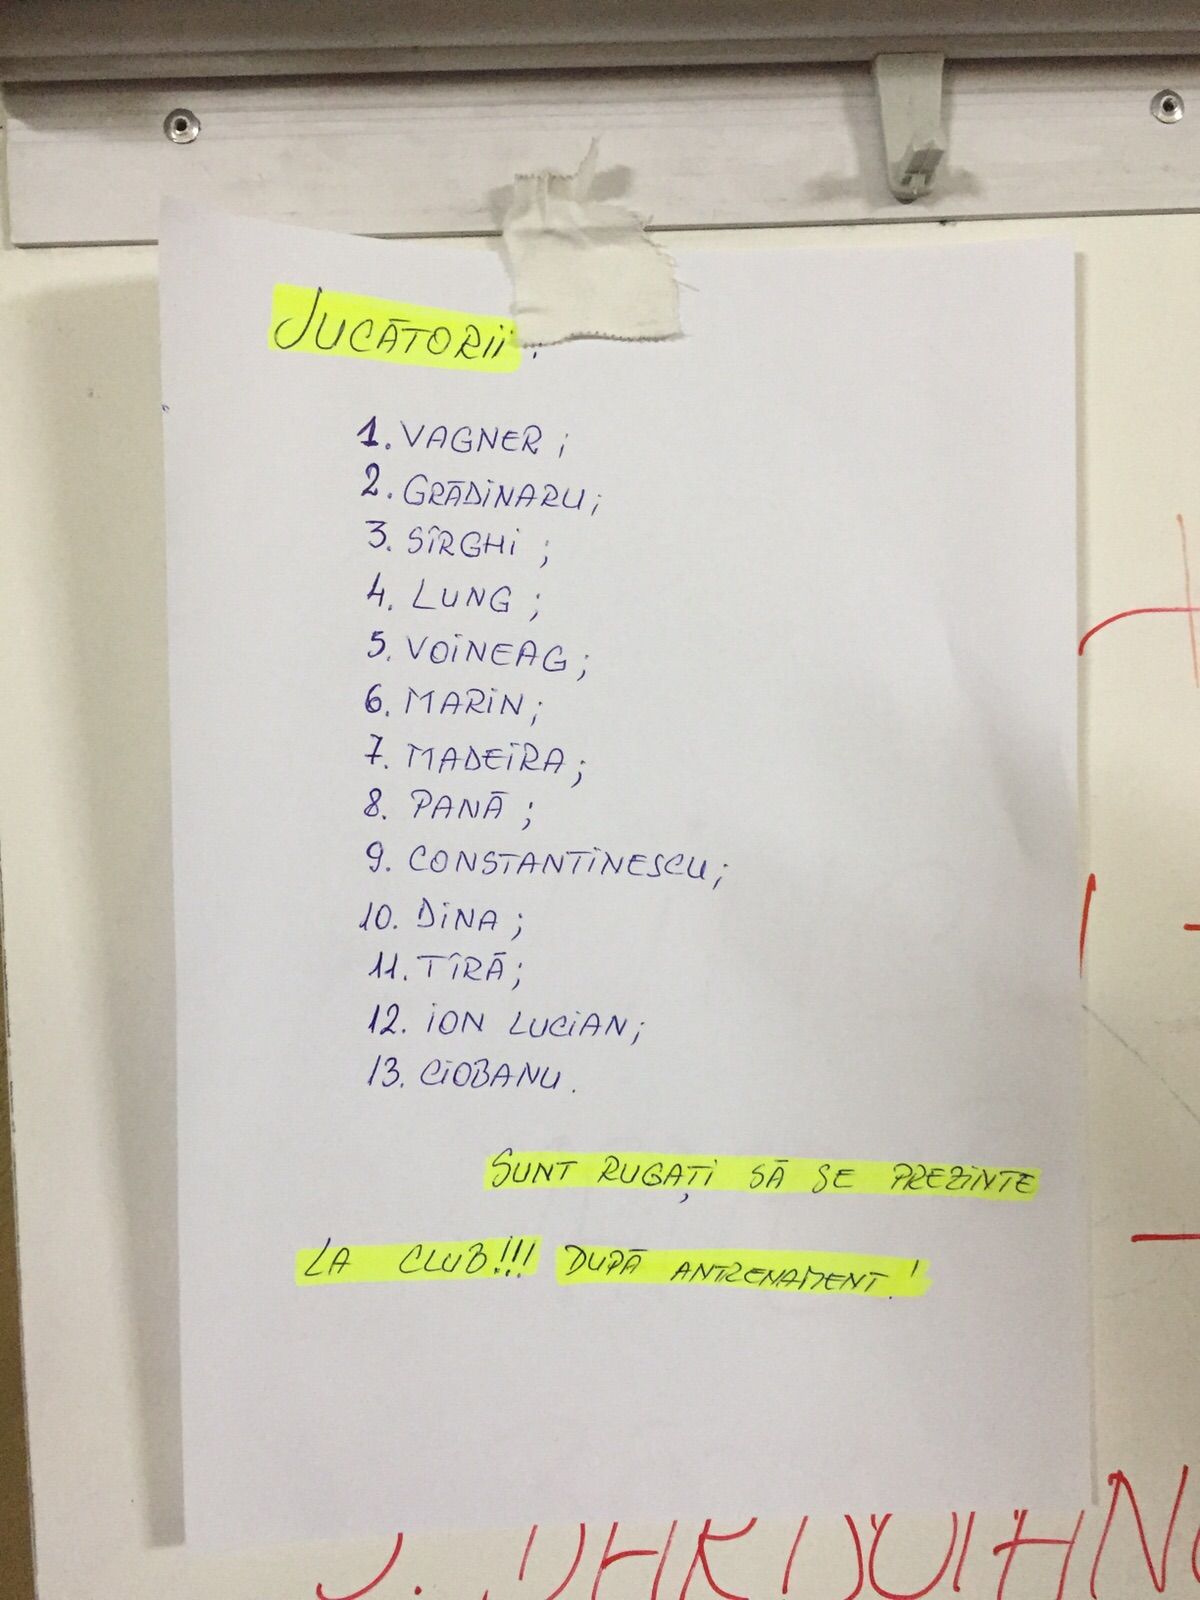 JUCĂTORII:
1. VAGNER;
2. GRĂDINARU;
3. SÎRGHI;
4. LUNG;
5. VOINEAG;
6. MARIN;
7. MADEIRA;
8. PANĂ;
9. CONSTANTINESCU;
10. DINA;
11. TÎRĂ;
12. ION LUCIAN;
13. CIOBANU.
SUNT RUGAȚI SĂ SE PREZINTE
LA CLUB!!! DUPĂ ANTRENAMENT!